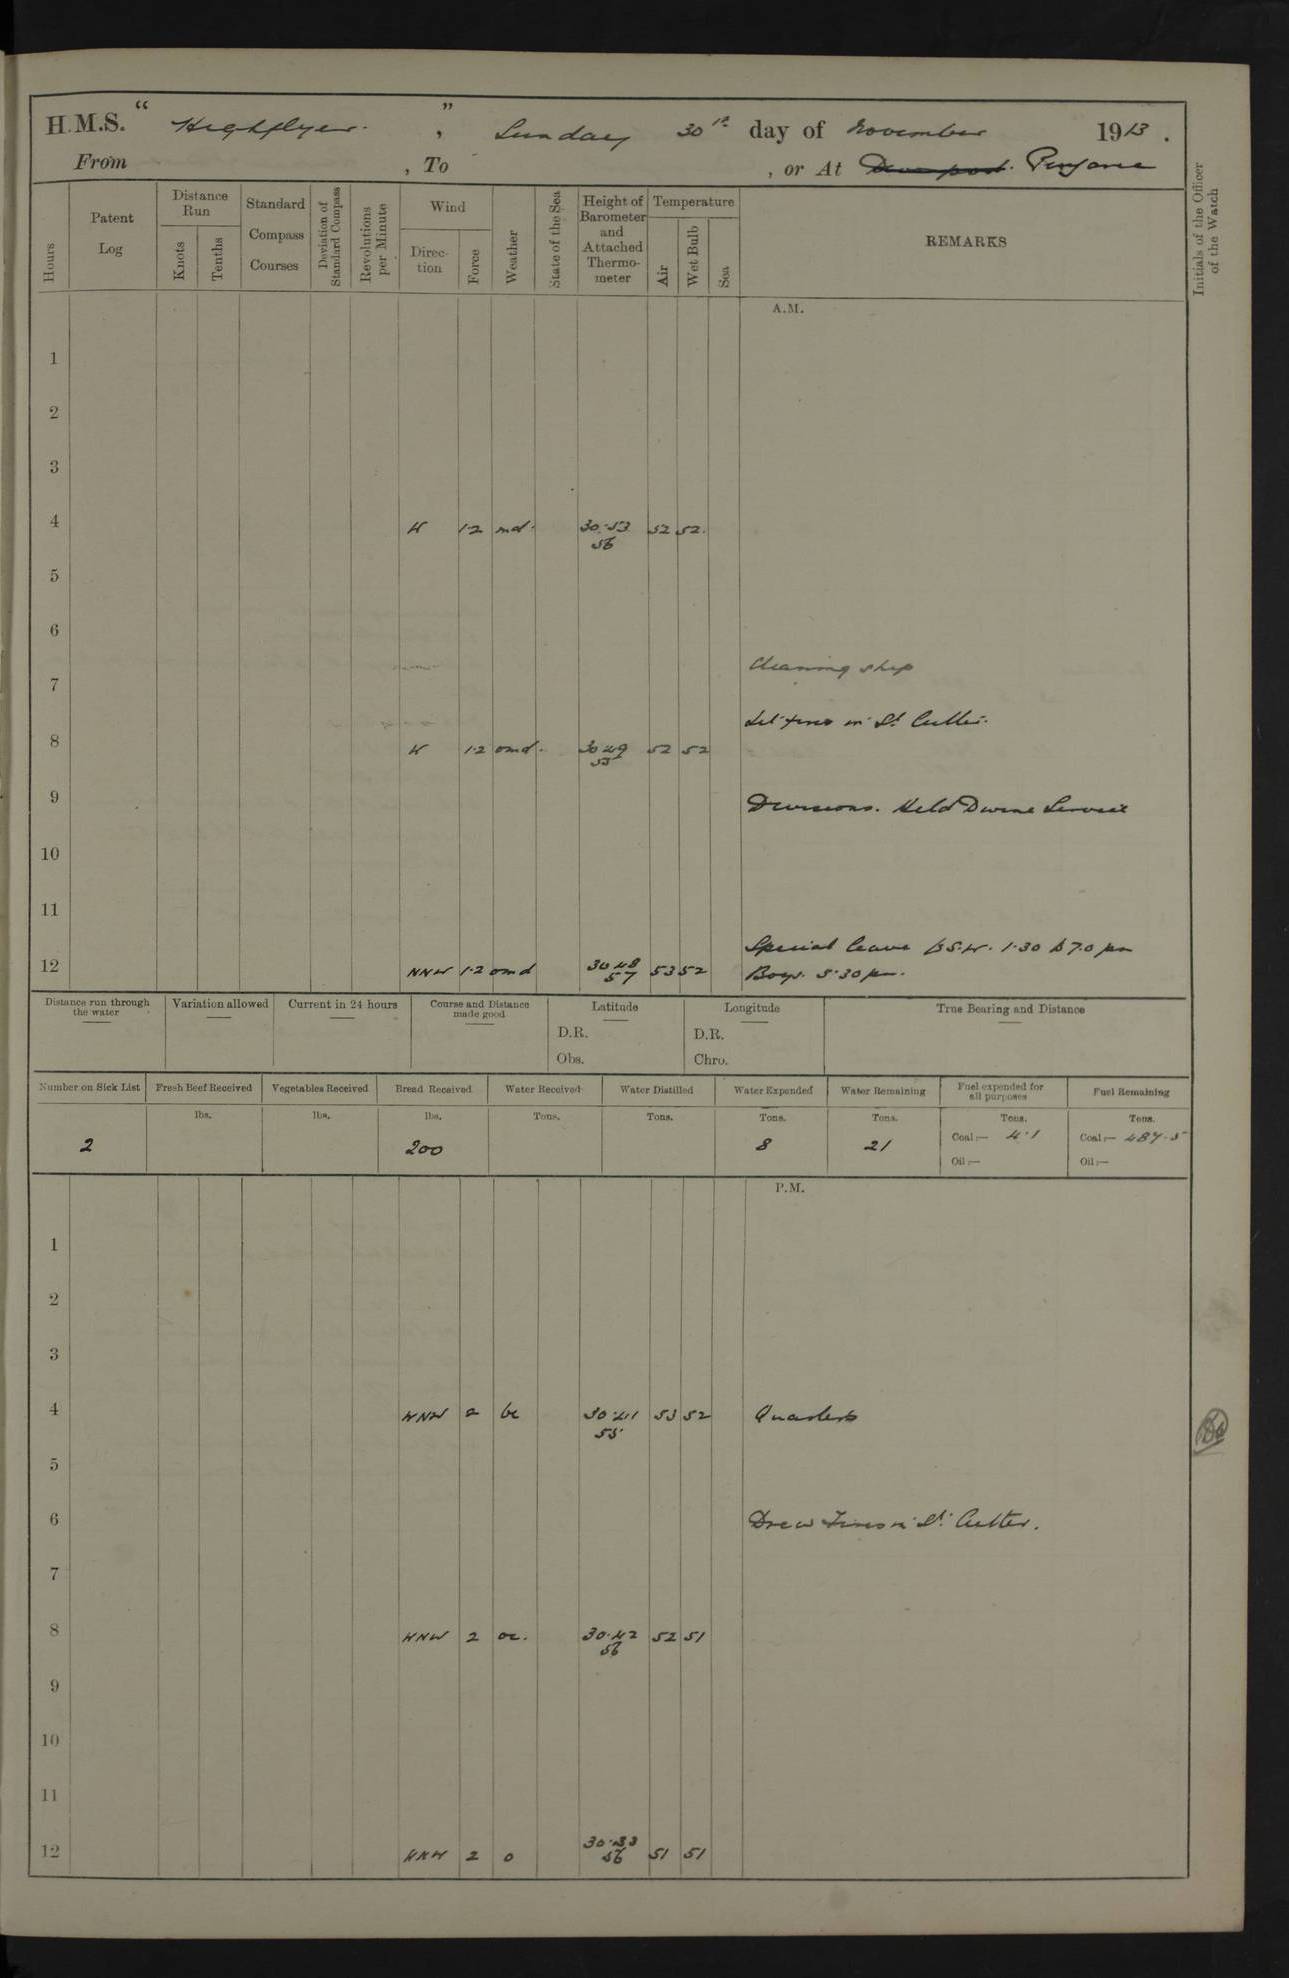 H.M.S. " Highflyer. " , Sunday 30th day of November 1913.
From , To , or At Devonport. Penzance
Hours
Patent Log
Distance Run
Knots
Tenths
Standard Compass Courses
Deviation of Standard Compass
Revolutions per Minute
Wind
Direction
Force
Weather
State of the Sea
Height of Barometer and Attached Thermometer
Temperature
Air
Wet Bulb
Sea
REMARKS
Initials of the Officer of the Watch
A.M.
1
2
3
4 W 1.2 md. 30.53 56 52 52.
5
6
Cleaning ship
7
Lit fires in St. Cutter.
8 W 1.2 omd. 30.49 55 52 52
9 Divisions. Held Divine Service
10
11
Special leave 1.30 to 7.0 pm
12 NNW 1.2 omd 30.48 57 53 52 Boys. 5.30 pm.
Distance run through the water
Variation allowed
Current in 24 hours
Course and Distance made good
Latitude
D.R.
Obs.
Longitude
D.R.
Chro.
True Bearing and Distance
Number on Sick List Fresh Beef Received Vegetables Received Bread Received Water Received Water Distilled Water Expended Water Remaining Fuel expended for all purposes Fuel Remaining
lbs. lbs. lbs. Tons. Tons. Tons. Tons. Tons. Tons.
2 200 8 21 Coal:— 4.1 Coal:— 487.5
Oil:— Oil:—
P.M.
1
2
3
4 WNW 2 bc 30.41 55 53 52 Quarters
5
6 Drew Fires in St. Cutter.
7
8 WNW 2 oc. 30.42 56 52 51
9
10
11
12 WNW 2 o 30.33 56 51 51